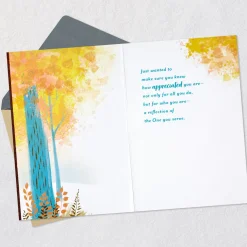 Just wanted to
make sure you know
how appreciated you are—
not only for all you do,
but for who you are—
a reflection of
the One you serve.